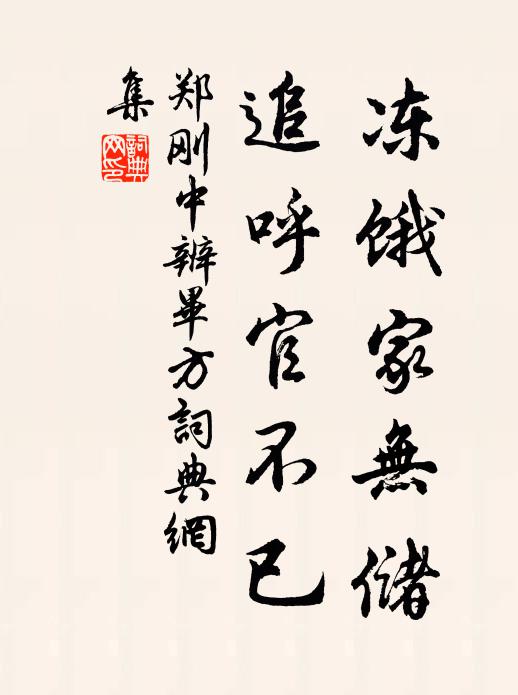 冻饿家無儲
追呼官不已
郑刚中辨畢方詞典網
集
詞典
网印